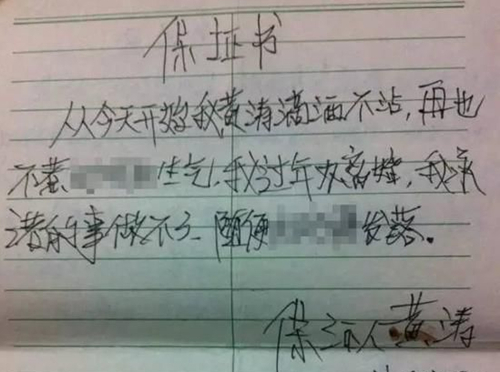 保证书
从今天开始我黄涛滴酒不沾,再也
不惹生气,我过年办离婚,我承
诺的事做不了 随便发落。
保证人黄涛